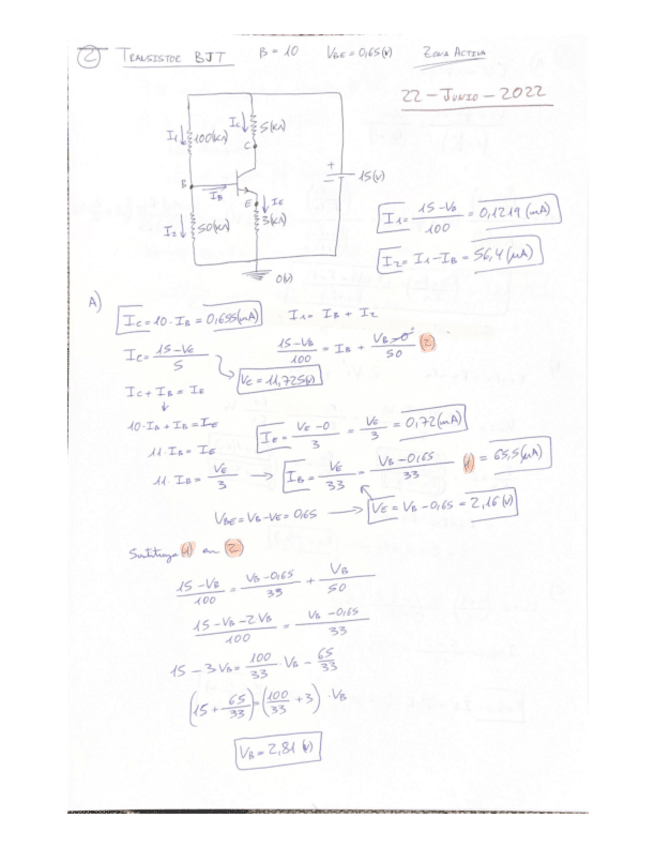 2 TRANSISTOR BJT B = 10 VBE = 0,65(V) ZONA ACTIVA
22-JUNIO-2022
I1 100(KΩ) IC 5(KΩ)
C
+
B IB 15(V)
-
E IE
I2 50(KΩ) 3(KΩ)
0(V)
I1 = (15 - VB)/100 = 0,1219 (mA)
I2 = I1 - IB = 56,4 (μA)
A)
IC = 10·IB = 0,655(mA) I1 = IB + I2
IC = (15 - VC)/5 (15 - VB)/100 = IB + (VB - 0)/50 (2)
VC = 11,725(V)
IC + IB = IE
10·IB + IB = IE IE = (VE - 0)/3 = VE/3 = 0,72(mA)
11·IB = IE
11·IB = VE/3 → IB = VE/33 = (VB - 0,65)/33 (1) = 65,5(μA)
VBE = VB - VE = 0,65 → VE = VB - 0,65 = 2,16 (V)
(1) en (2)
(15 - VB)/100 = (VB - 0,65)/33 + VB/50
(15 - VB - 2VB)/100 = (VB - 0,65)/33
15 - 3VB = 100/33 · VB - 65/33
(15 + 65/33) = (100/33 + 3) · VB
VB = 2,81 (V)